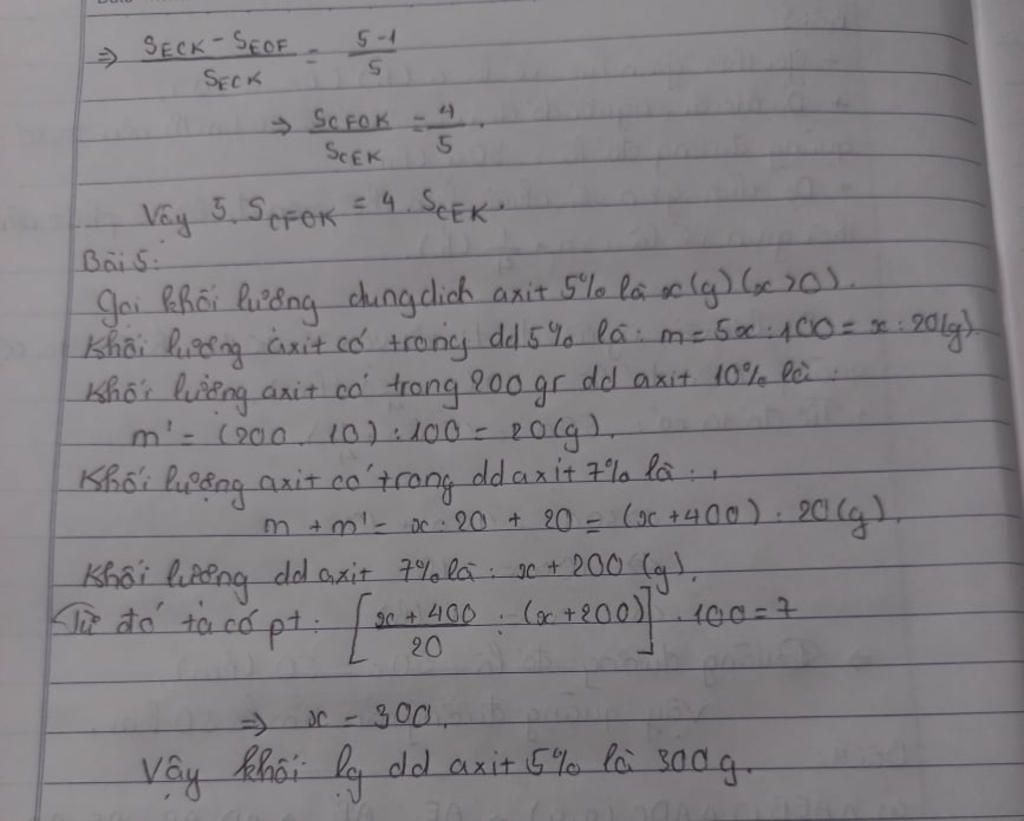 ⇒ (S_ECK - S_EOF) / S_ECK = (5-1) / 5
⇒ S_CFOK / S_CEK = 4 / 5.
Vậy 5. S_CFOK = 4. S_CEK.
Bài 5:
Gọi khối lượng dung dịch axit 5% là x(g) (x>0).
Khối lượng axit có trong dd 5% là: m = 5x : 100 = x : 20(g)
Khối lượng axit có trong 200 gr dd axit 10% là:
m' = (200 . 10) : 100 = 20(g).
Khối lượng axit có trong dd axit 7% là:
m + m' = x : 20 + 20 = (x+400) : 20(g).
Khối lượng dd axit 7% là: x + 200 (g).
Từ đó ta có pt: [(x + 400) / 20 : (x+200)] . 100 = 7
⇒ x = 300.
Vậy khối lg dd axit 5% là 300g.